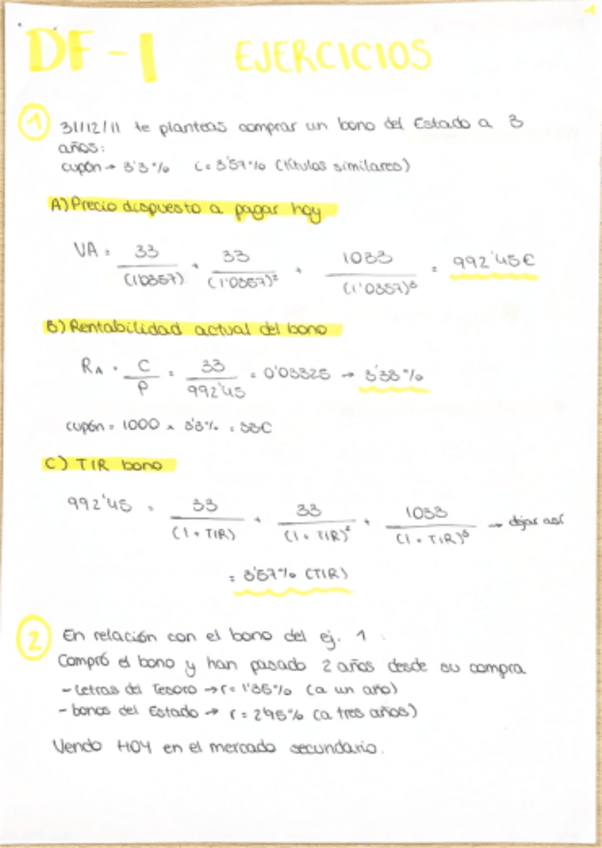 1
DF-1 EJERCICIOS
1 31/12/11 te planteas comprar un bono del Estado a 3
años:
cupón → 3'3% i = 3'57% (títulos similares)
A) Precio dispuesto a pagar hoy
VA = 33/(1'0357) + 33/(1'0357)² + 1033/(1'0357)³ = 992'45€
B) Rentabilidad actual del bono
RA = C/P = 33/992'45 = 0'03325 → 3'33%
cupón = 1000 x 3'3% = 33€
C) TIR bono
992'45 = 33/(1+TIR) + 33/(1+TIR)² + 1033/(1+TIR)³ → dejar así
= 3'57% (TIR)
2 En relación con el bono del ej. 1:
Compró el bono y han pasado 2 años desde su compra
- Letras del Tesoro → r = 1'35% (a un año)
- bonos del Estado → r = 2'95% (a tres años)
Vendo HOY en el mercado secundario.